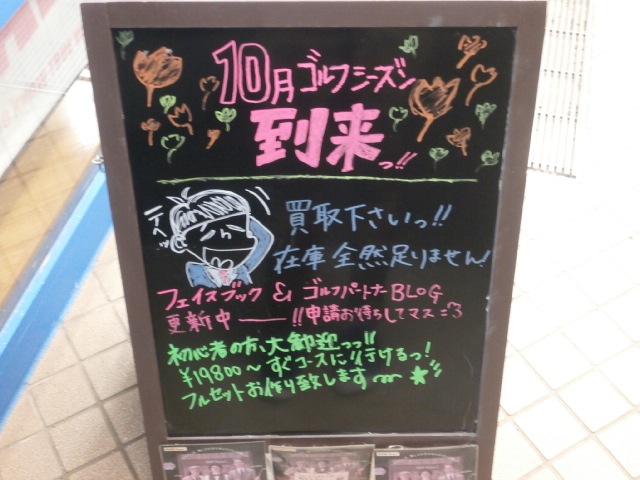 10月ゴルフシーズン
到来っ!!
テヘッ
買取下さいっ!!
在庫全然足りません!
フェイスブック & ゴルフパートナーBLOG
更新中――!!申請お待ちしてマス
初心者の方、大歓迎っっ!!
¥19800～すぐコースに行けるっ!
フルセットお作り致します～